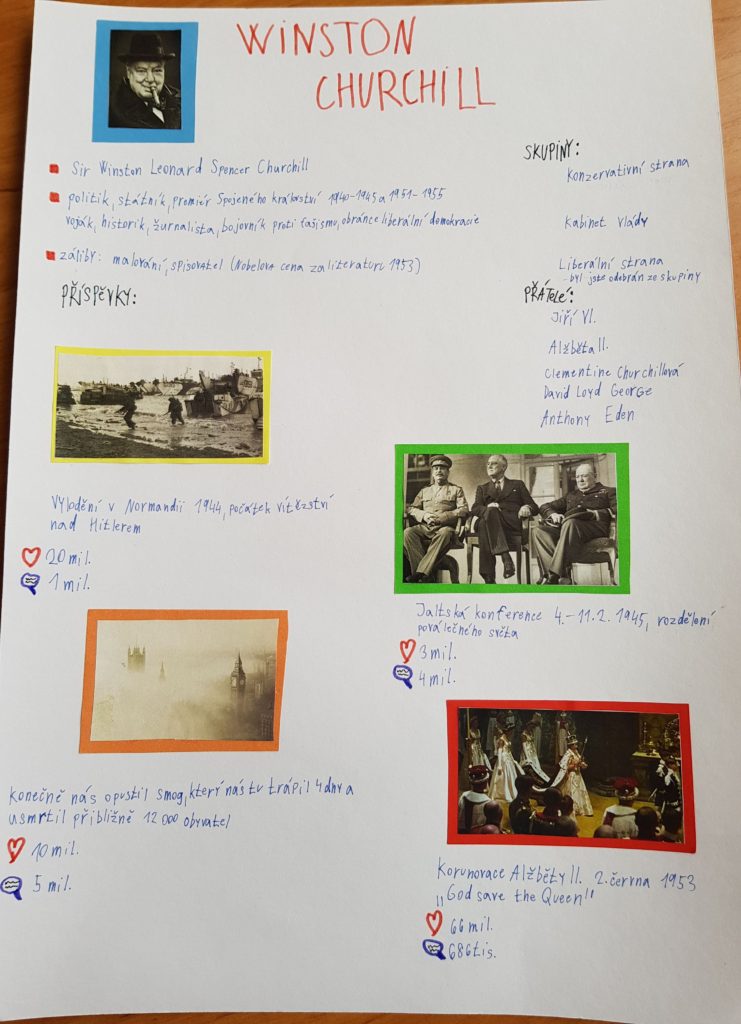 WINSTON
CHURCHILL
Sir Winston Leonard Spencer Churchill
politik, státník, premiér Spojeného království 1940-1945 a 1951-1955
voják, historik, žurnalista, bojovník proti fašismu, obránce liberální demokracie
záliby: malování, spisovatel (Nobelova cena za literaturu 1953)
SKUPINY:
Konzervativní strana
Kabinet vlády
Liberální strana
- byl jste odebrán ze skupiny
PŘÁTELÉ:
Jiří VI.
Alžběta II.
Clementine Churchillová
David Loyd George
Anthony Eden
PŘÍSPĚVKY:
Vylodění v Normandii 1944, počátek vítězství
nad Hitlerem
20 mil.
1 mil.
Jaltská konference 4.-11.2. 1945, rozdělení
poválečného světa
3 mil.
4 mil.
Konečně nás opustil smog, který nás tu trápil 4 dny a
usmrtil přibližně 12 000 obyvatel
10 mil.
5 mil.
Korunovace Alžběty II. 2. června 1953
"God save the Queen"
66 mil.
686 tis.